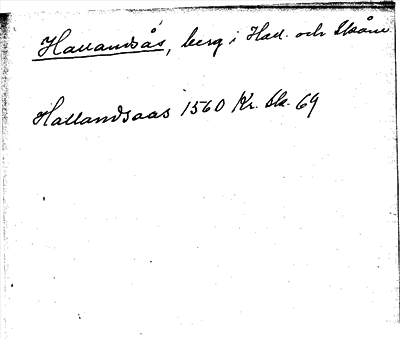 Hallandsås, berg i Hall. och Skåne
Hallandsaas 1560 Kr. Sk. 69